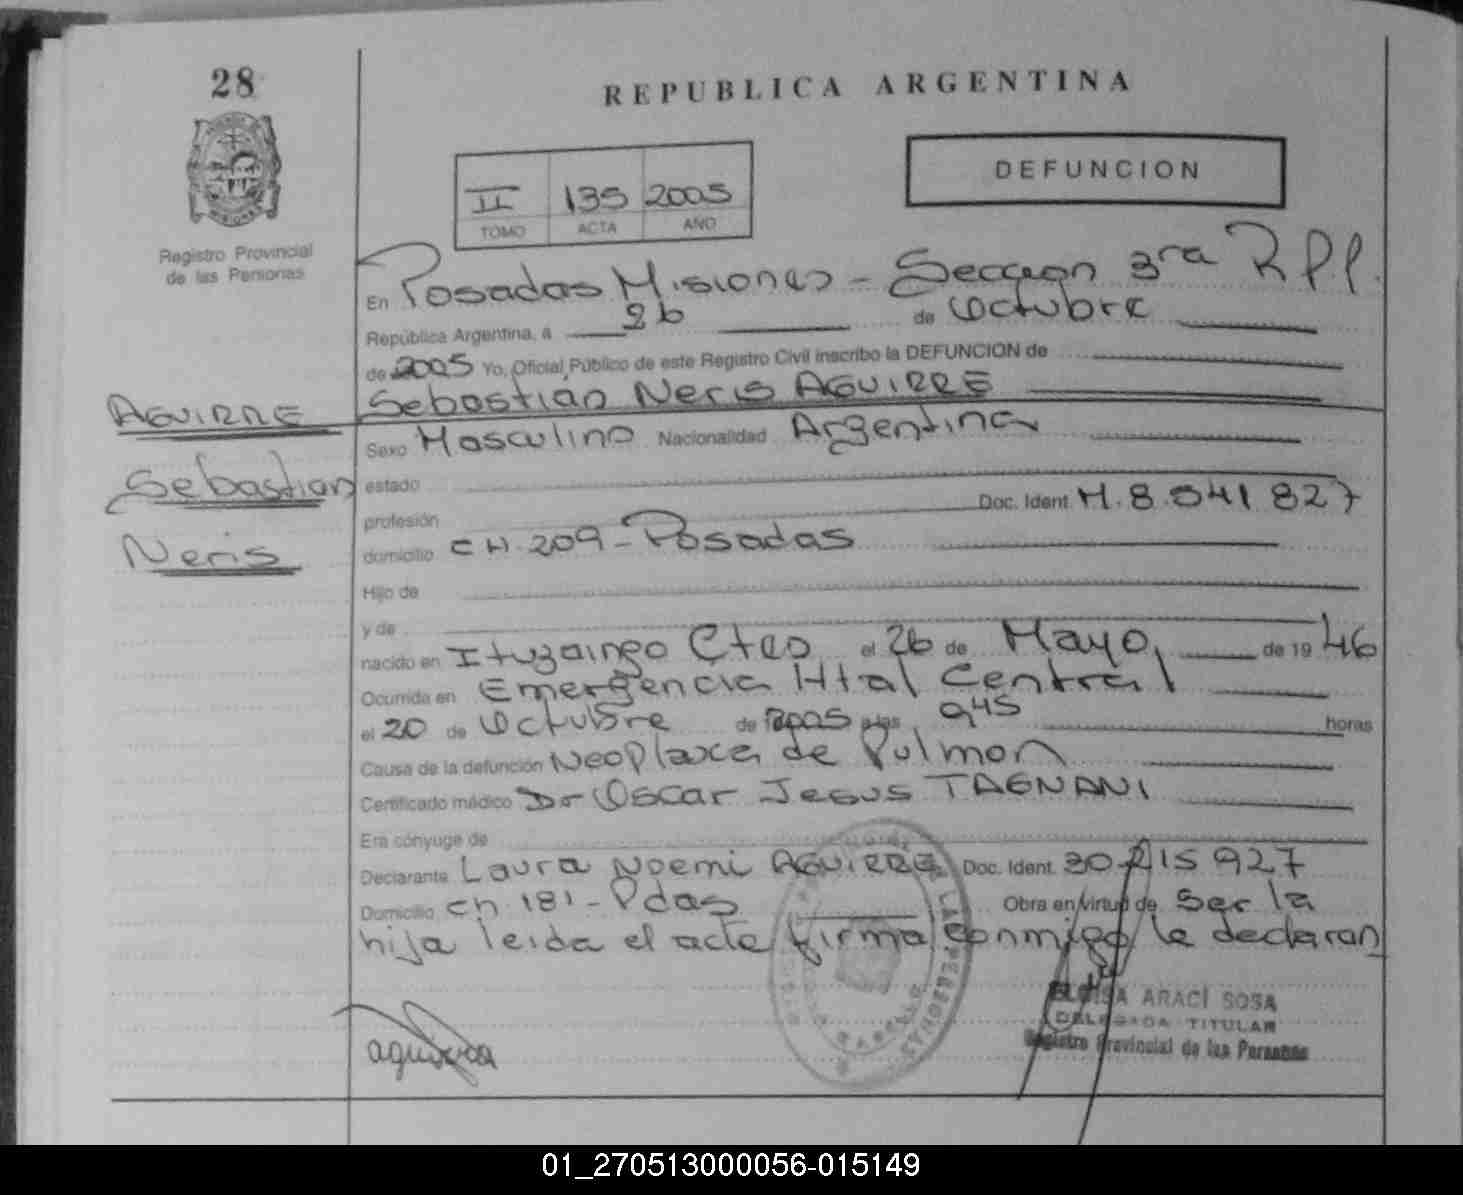 28
REPUBLICA ARGENTINA
DEFUNCION
II 135 2005
TOMO ACTA AÑO
Registro Provincial
de las Personas
En Posadas Misiones - Seccion 3ra R.P.P.
República Argentina, a 26 de Octubre
de 2005 Yo, Oficial Público de este Registro Civil inscribo la DEFUNCION de
Sebastián Neris AGUIRRE
AGUIRRE
Sebastian
Neris
Sexo Masculino Nacionalidad Argentina
estado
profesión Doc. Ident. M. 8.541.827
domicilio CH 209 - Posadas
Hijo de
y de
nacido en Ituzaingo Ctes el 26 de Mayo de 19 46
Ocurrida en Emergencia Htal Central
el 20 de Octubre de 2005 a las 9 45 horas
Causa de la defunción de Pulmon
Certificado médico Dr Oscar Jesus TAGNANI
Era cónyuge de
Declarante Laura Noemi AGUIRRE Doc. Ident. 30.215.927
Domicilio ch 181 - Pdas Obra en virtud de Ser la
hija leida el acta firma conmigo la declaran
ELOISA ARACÍ SOSA
DELEGADA TITULAR
Registro Provincial de las Personas
01_270513000056-015149